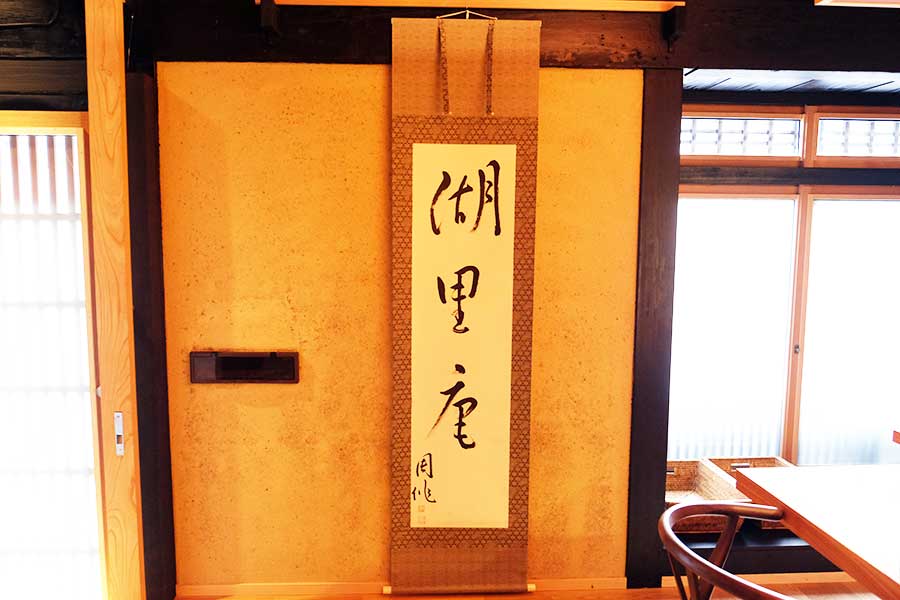 湖里庵
周作